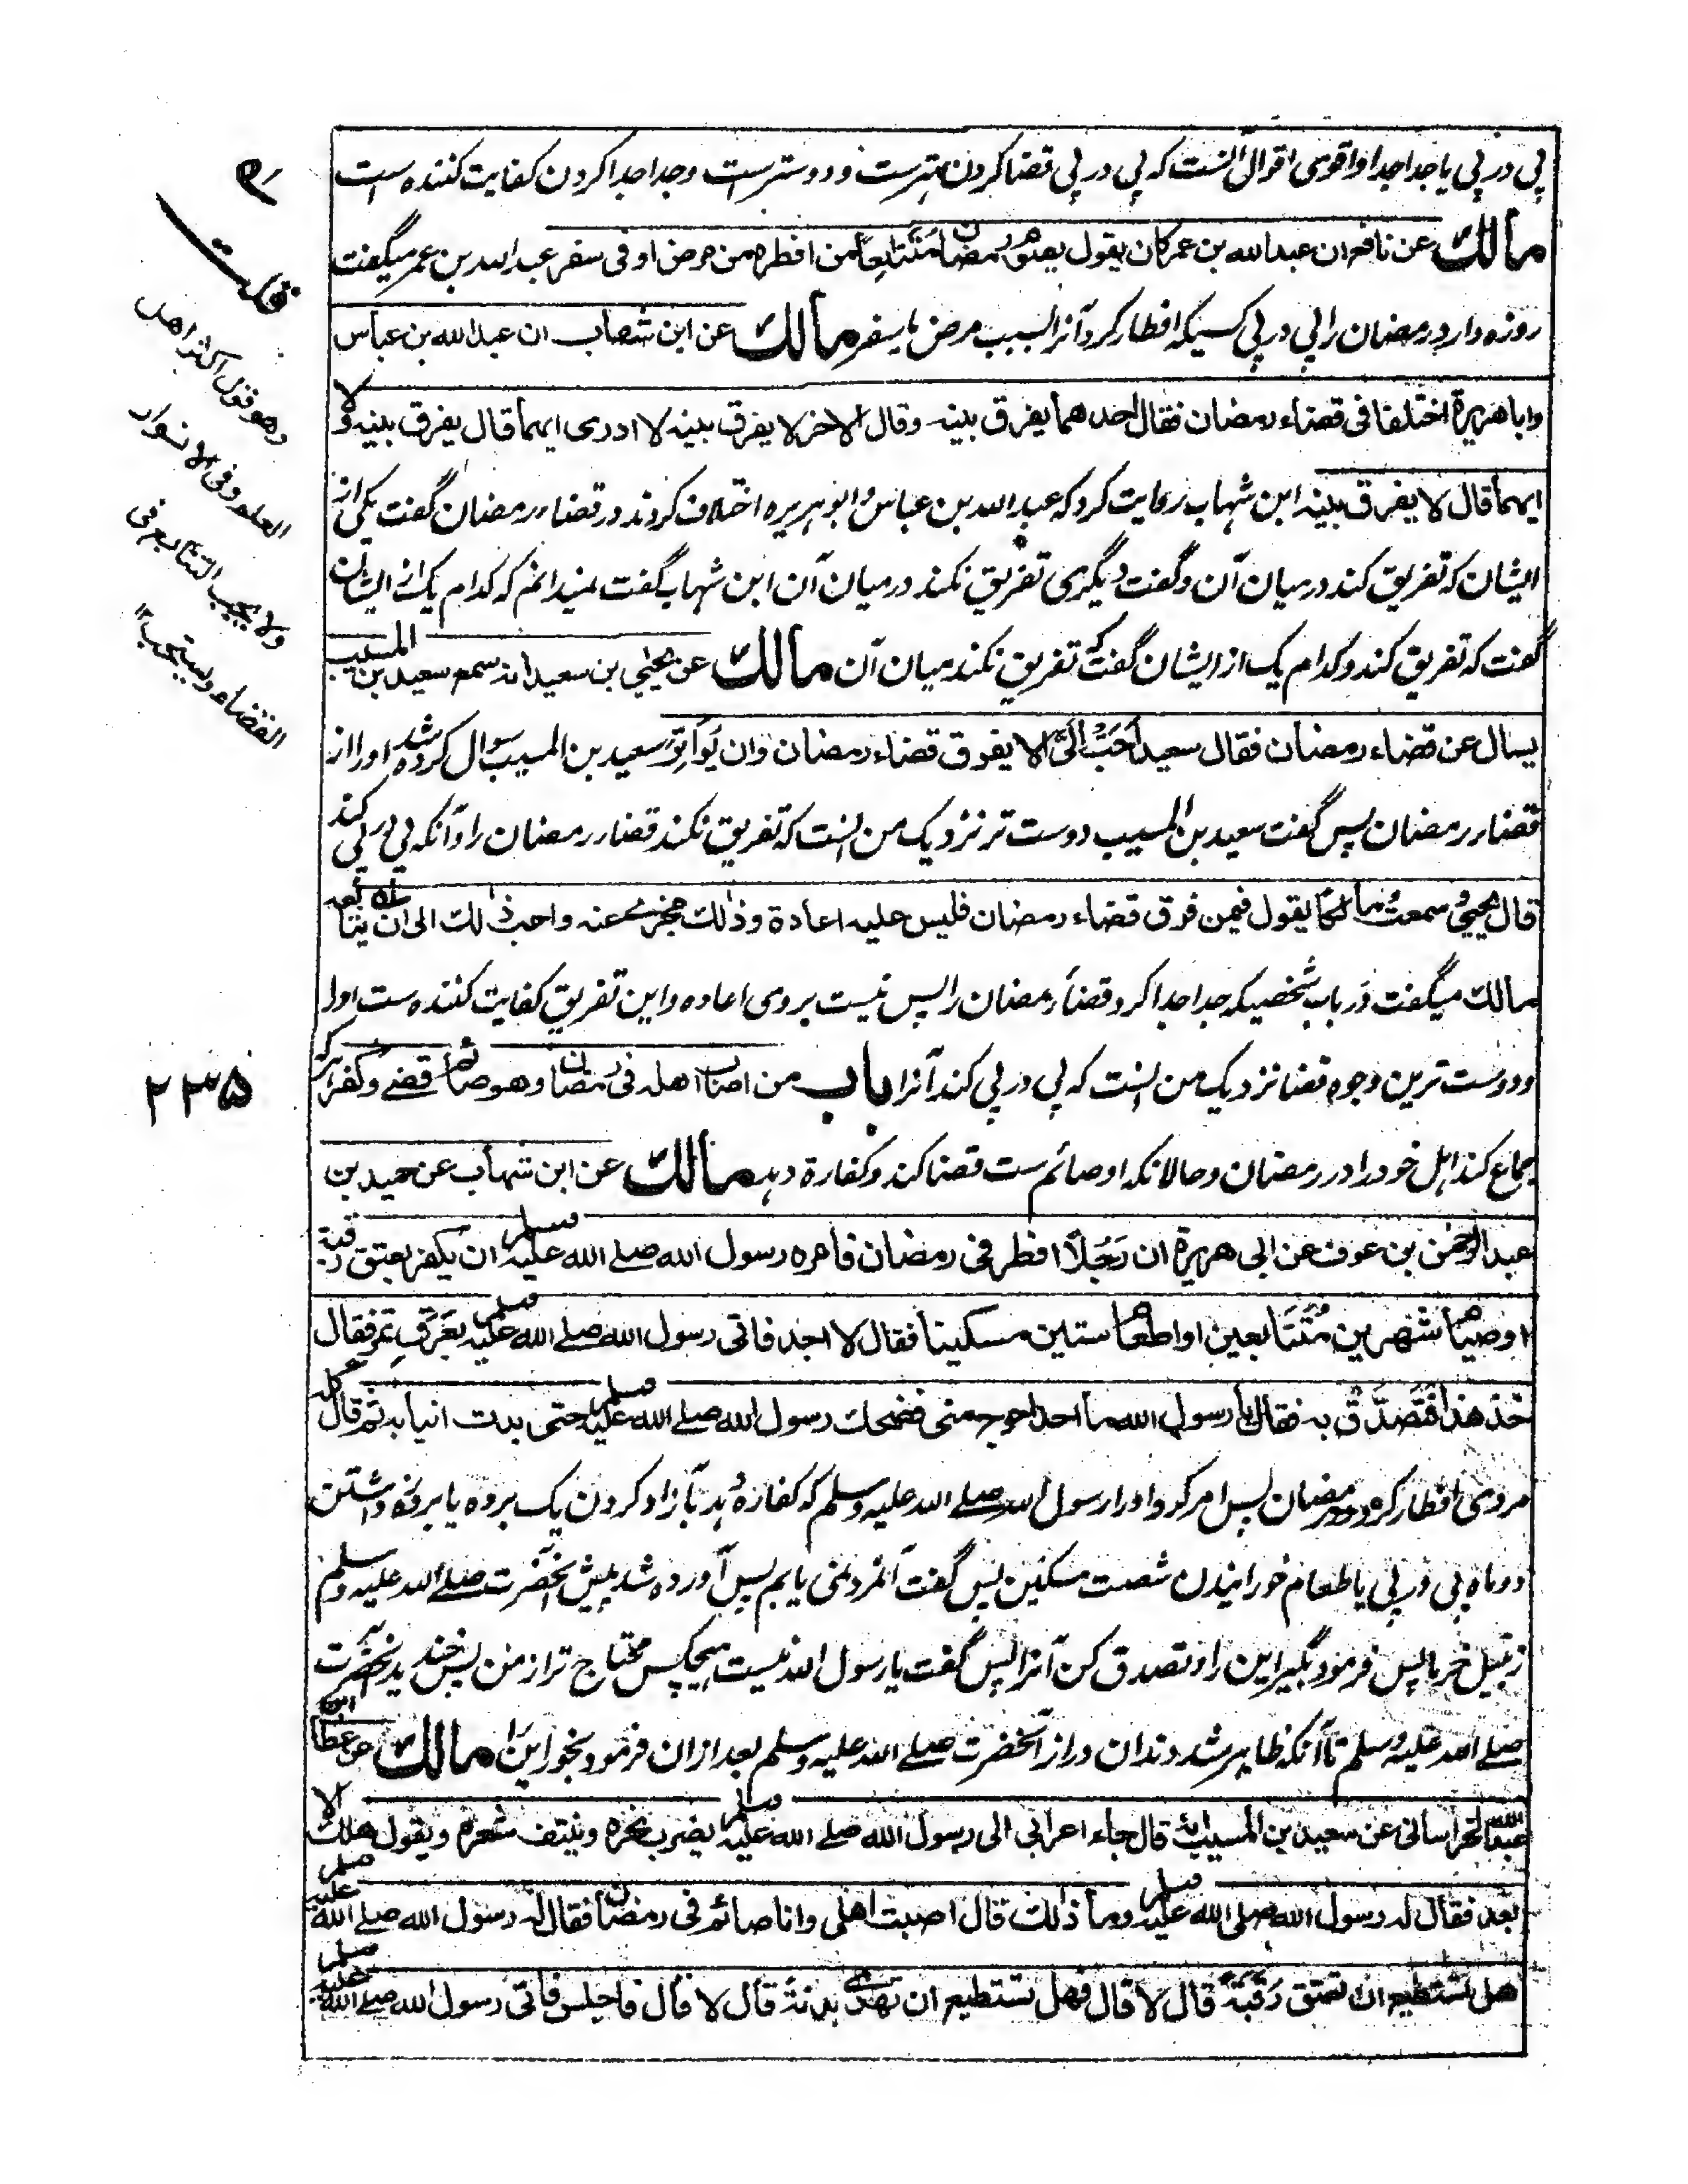 پی در پی یا جدا جدا و اقوی اقوال آنست که پی در پی قضا کردن بهترست و دوسترست و جدا جدا کردن کفایت کننده است
مالك عن نافع ان عبد الله بن عمر كان يقول يصوم رمضان مُتَتَابِعاً من افطره من مرض او فى سفر عبد الله بن عمر میگفت
روزه دارد رمضان را پی در پی کسیکه افطار کرد آنرا بسبب مرض یا سفر مالك عن ابن شهاب ان عبد الله بن عباس
وابا هريرة اختلفا فى قضاء رمضان فقال احدهما يفرق بينه وقال الاخر لا يفرق بينه لا ادرى ايهما قال يفرق بينه ولا
ايهما قال لا يفرق بينه ابن شهاب روایت کرد که عبد الله بن عباس و ابو هریره اختلاف کردند در قضاء رمضان گفت یکی از
ایشان که تفریق کند درمیان آن و گفت دیگری تفریق نکند درمیان آن ابن شهاب گفت نمیدانم که کدام یک از ایشان
گفت که تفریق کند و کدام یک از ایشان گفت که تفریق نکند میان آن مالك عن يحيى بن سعيد انه سمع سعيد بن المسيب
يسال عن قضاء رمضان فقال سعيد اَحَبُّ الَىَّ الا يفرق قضاء رمضان وان يُوَاتِرَ سعید بن المسیب سوال کرده شد او را از
قضاء رمضان پس گفت سعید بن المسیب دوست تر نزدیک من آنست که تفریق نکند قضاء رمضان را و آنکه پی در پی کند
قال يحيى سمعت مالكا يقول فيمن فرق قضاء رمضان فليس عليه اعادة وذلك مجزئ عنه واحب ذلك الى ان يتابعه
مالك میگفت در باب شخصیکه جدا جدا کرد قضاء رمضان را پس نیست بروی اعاده و این تفریق کفایت کننده ست او را
و دوست ترین وجوه قضا نزدیک من آنست که پی در پی کند آنرا باب من اصاب اهله فى رمضان وهو صائم قضے وكفر هر که
جماع کند اهل خود را در رمضان و حالانکه او صائم ست قضا کند و کفارة دهد مالك عن ابن شهاب عن حميد بن
عبد الرحمن بن عوف عن ابى هريرة ان رَجُلاً افطر فى رمضان فامره رسول الله صلے الله عليه وسلم ان يكفر بعتق رقبة
او صيام شهرين مُتَتَابعين او اطعام ستين مسكينا فقال لا اجد فاتى رسول الله صلے الله عليه وسلم بعَرَقِ تمر فقال
خذ هذا فَتَصَدَّقْ به فقال يا رسول الله ما احدا حوج منى فضحك رسول الله صلے الله عليه وسلم حتى بدت انيابه ثم قال كله
مردی افطار کرد در رمضان پس امر کرد او را رسول الله صلے الله علیه وسلم که کفاره دهد بآزاد کردن یک برده یا بروزه داشتن
دو ماه پی در پی یا طعام خورانیدن شصت مسکین پس گفت آنمرد نمی یابم پس آورده شد پیش آنحضرت صلے الله علیه وسلم
زنبیل خرما پس فرمود بگیر این را و تصدق کن آنرا پس گفت یا رسول الله نیست هیچکس محتاج تر از من پس خندید آنحضرت
صلے الله علیه وسلم تا آنکه ظاهر شد دندان دراز آنحضرت صلے الله علیه وسلم بعد ازان فرمود بخور این را مالك عن عطا ابن
عبد الله الخراسانى عن سعيد بن المسيب انه قال جاء اعرابى الى رسول الله صلے الله عليه وسلم يضرب نحره وينتف شعره ويقول هلك الا
بعد فقال له رسول الله صلى الله عليه وسلم وما ذلك قال اصبت اهلى وانا صائم فى رمضان فقال له رسول الله صلے الله عليه وسلم
هل تستطيع ان تعتق رَقَبَةً قال لا قال فهل تستطيع ان تهدى بدنة قال لا قال فاجلس فاتى رسول الله صلے الله عليه وسلم
قلت
وهو قول اكثر اهل
العلم وفى الانوار
ولا يجب التتابع فى
القضاء ويستحب ۱۲
۲۳۵